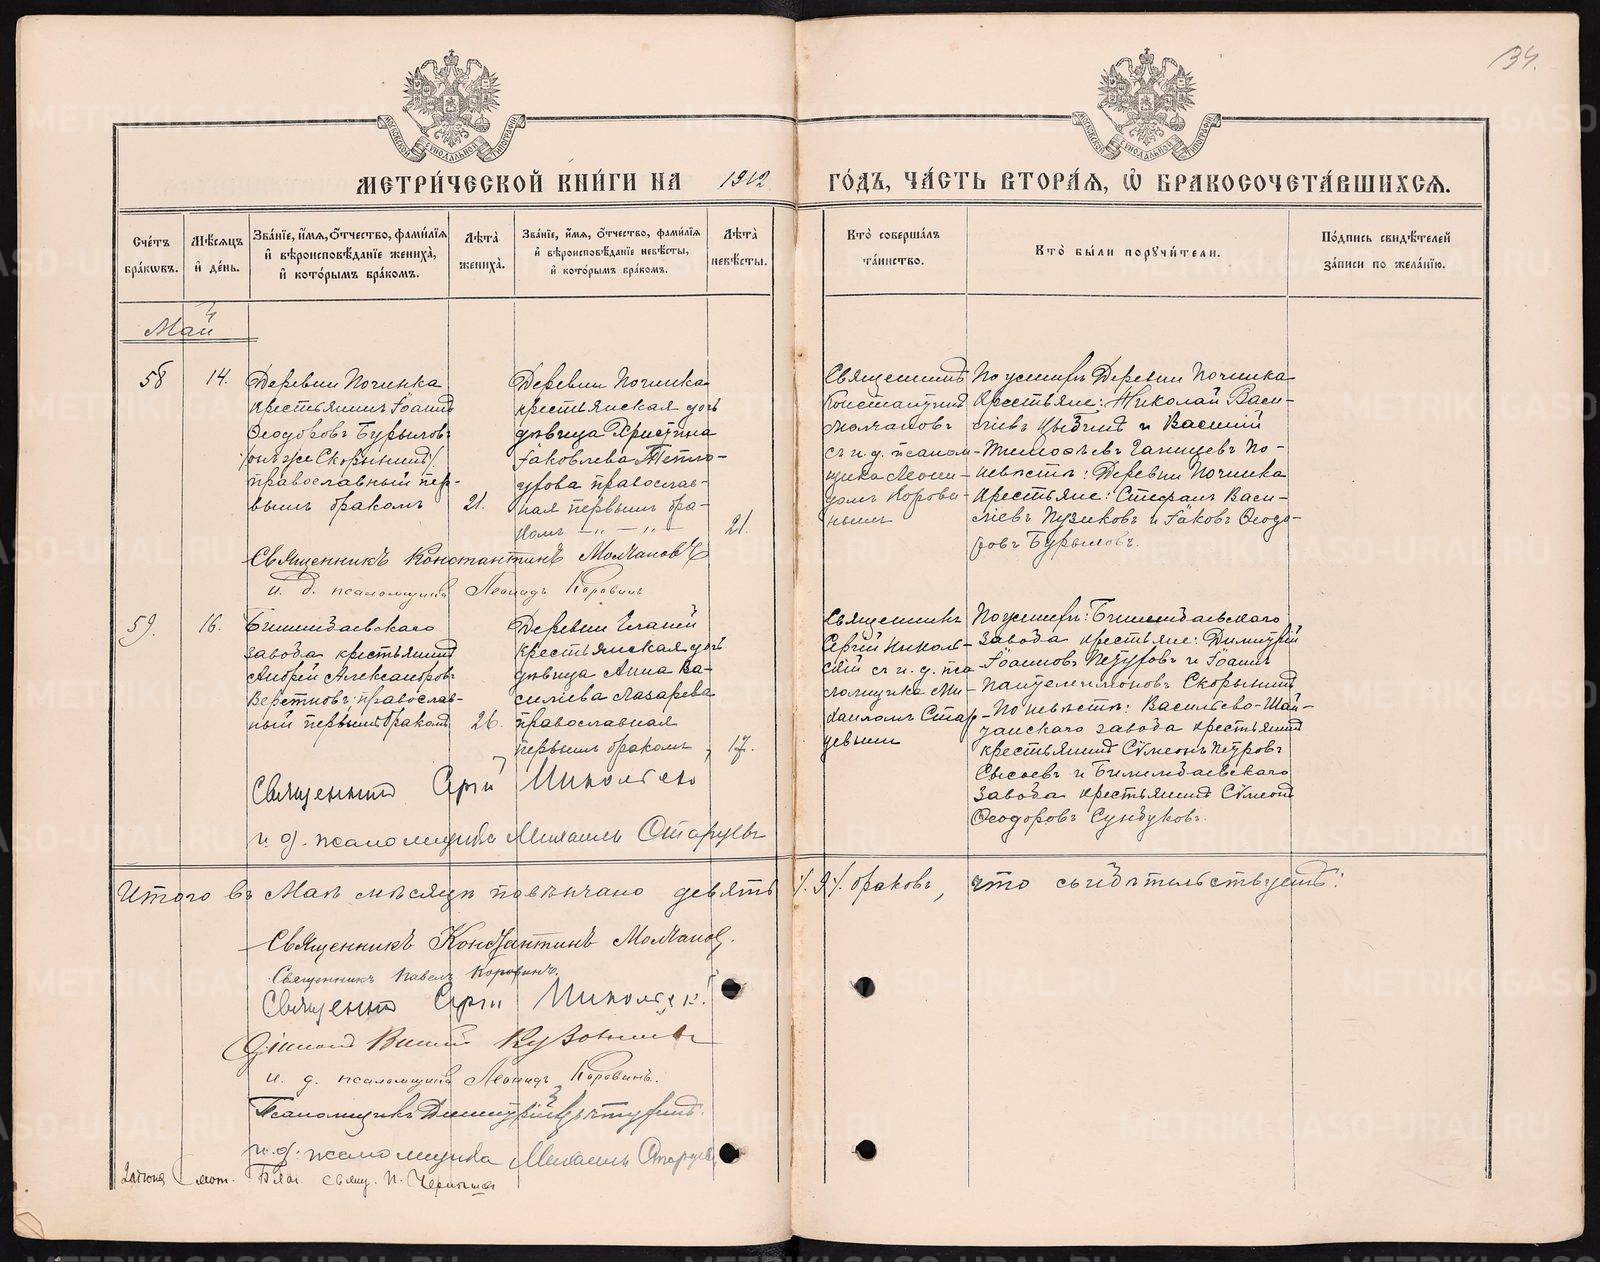 134.
МЕТРИ́ЧЕСКОЙ КНИ́ГИ НА 1912 ГО́ДЪ, ЧА́СТЬ ВТОРА́Я, Ѡ БРАКОСОЧЕТА́ВШИХСЯ.
Сче́тъ бра́кѡвъ.
Мѣ́сяцъ и҆ де́нь.
Зва́нїе, и҆́мя, ѻ҆́тчество, фами́лїя и҆ вѣроисповѣ́данїе жениха̀, и҆ кото́рымъ бра́комъ.
Лѣ́та жениха̀.
Зва́нїе, и҆́мя, ѻ҆́тчество, фами́лїя и҆ вѣроисповѣ́данїе невѣ́сты, и҆ кото́рымъ бра́комъ.
Лѣ́та невѣ́сты.
Кто̀ соверша́лъ та́инство.
Кто̀ бы́ли порꙋчи́тели.
По́дпись свидѣ́телей за́писи по жела́нїю.
Май
58
14.
Деревни Починка
крестьянинъ Іоаннъ
Ѳеодоровъ Бурыловъ
/онъ же Скорынинъ/
православный пер-
вымъ бракомъ
21.
Деревни Починка
крестьянская дочь
дѣвица Христина
Іаковлева Тепло-
ухова православ-
ная первымъ бра-
комъ
21.
Священникъ
Константинъ
Молчановъ
съ и. д. псалом-
щика Леони-
домъ Корови-
нымъ
По женихѣ Деревни Починка
крестьяне: Николай Васи-
ліевъ Цыбинъ и Василій
Тимоѳеевъ Ганцевъ По
невѣстѣ: Деревни Починка
крестьяне: Стефанъ Васи-
ліевъ Пузиковъ и Іаковъ Ѳеодо-
ровъ Бурыловъ.
Священникъ Константинъ Молчановъ
и. д. псаломщика Леонидъ Коровинъ
59.
16.
Билимбаевскаго
завода крестьянинъ
Андрей Александровъ
Верстновъ, православ-
ный первымъ бракомъ
26.
Деревни
крестьянская дочь
дѣвица Анна Ва-
силіева Лазарева
православная
первымъ бракомъ,
17.
Священникъ
Сергій Николь-
скій съ и. д. пса-
ломщика Ми-
хаиломъ Стар-
цевымъ
По женихѣ: Билимбаевскаго
завода крестьяне: Димитрій
Іоанновъ Петровъ и Іоаннъ
Пантелеимоновъ Скорынинъ
По невѣстѣ: Васильево-Шай-
танскаго завода крестьянинъ
крестьянинъ Сѵмеонъ Петровъ
Сысоевъ и Билимбаевскаго
завода крестьянинъ Сѵмеонъ
Ѳеодоровъ Сундуковъ.
Священникъ Сергій Никольскій
и. д. псаломщика Михаилъ Старцевъ
Итого въ Маѣ мѣсяцѣ повѣнчано девять /.9./. браковъ, что свидѣтельствуемъ:
Священникъ Константинъ Молчановъ.
Священникъ Павелъ Коровинъ.
Священникъ Сергій Никольскій
Діаконъ
и. д. псаломщика Леонидъ Коровинъ.
Псаломщикъ Димитрій
и. д. псаломщика Михаилъ Старцевъ
Благ. свящ. П.